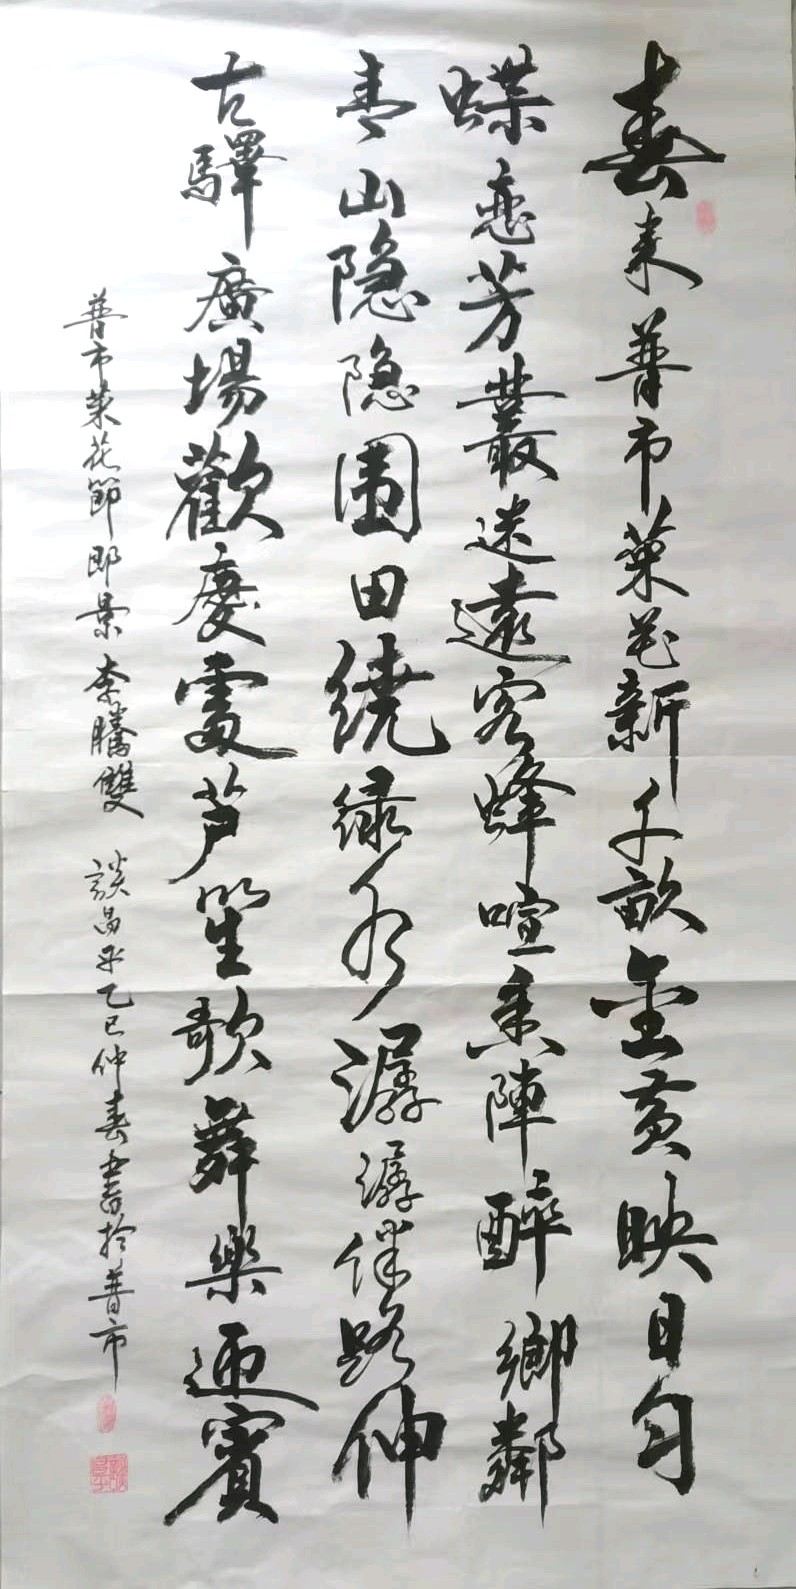 春来普市菜花新千畝金黄映日匀
蝶恋芳叢迷遠客蜂喧香陣醉鄉鄰
青山隐隐围田绕緑水潺潺伴路伸
古驛廣場歡慶處芦笙歌舞樂迎賓
普市菜花節即景李騰雙 談昌平乙巳仲春書於普市